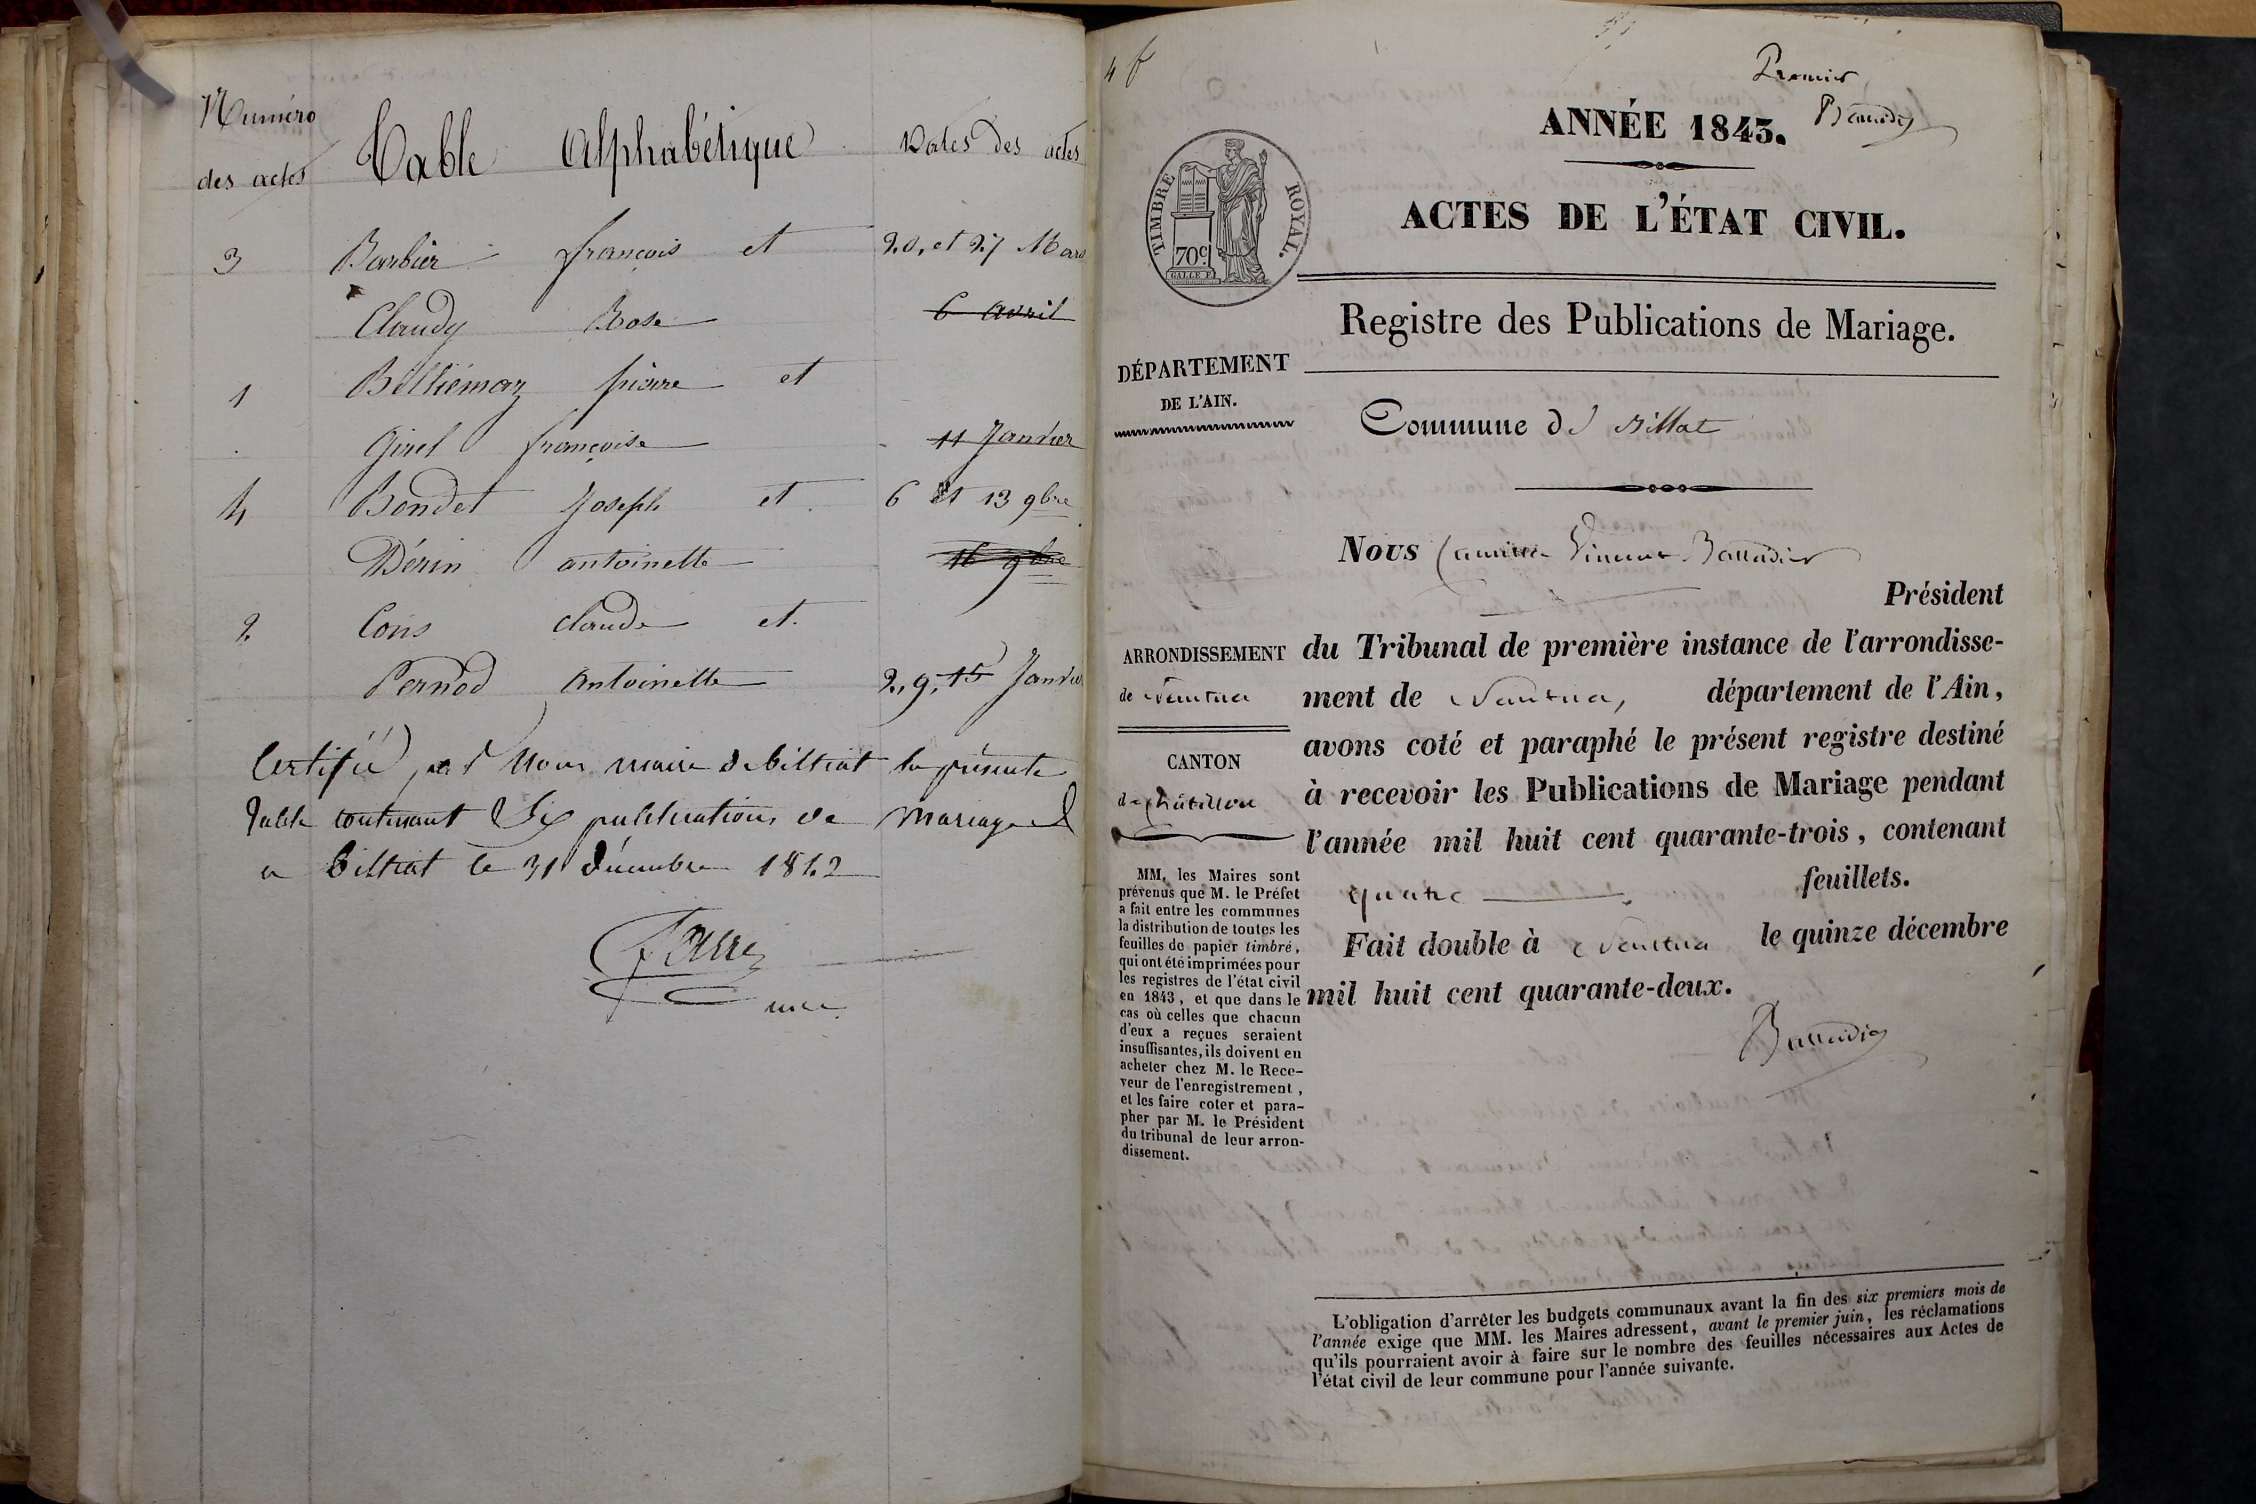 Numéro
des actes
Table Alphabétique
Dates des actes
3 Barbier françois et 20, et 27 Mars
Claudy Rose 6 avril
1 Béthiémoz pierre et
Girel françoise 11 Janvier
4 Bondet Joseph et 6 et 13 9bre
Périn antoinette 16 9bre
2 Coris claude et
Pernod Antoinette 2, 9, 15 Janvier
Certifié par Nous maire de billiat la présente
Table contenant Six publications de mariage
a billiat le 31 décembre 1842
Favre
Premier
ANNÉE 1843.
TIMBRE ROYAL.
70c
ACTES DE L'ÉTAT CIVIL.
Registre des Publications de Mariage.
DÉPARTEMENT
DE L'AIN.
Commune de Billat
Nous
Président
ARRONDISSEMENT
de Nantua
CANTON
de Châtillon
MM. les Maires sont
prévenus que M. le Préfet
a fait entre les communes
la distribution de toutes les
feuilles de papier timbré,
qui ont été imprimées pour
les registres de l'état civil
en 1843, et que dans le
cas où celles que chacun
d'eux a reçues seraient
insuffisantes, ils doivent en
acheter chez M. le Rece-
veur de l'enregistrement,
et les faire coter et para-
pher par M. le Président
du tribunal de leur arron-
dissement.
du Tribunal de première instance de l'arrondisse-
ment de Nantua, département de l'Ain,
avons coté et paraphé le présent registre destiné
à recevoir les Publications de Mariage pendant
l'année mil huit cent quarante-trois, contenant
quatre feuillets.
Fait double à Nantua le quinze décembre
mil huit cent quarante-deux.
L'obligation d'arrêter les budgets communaux avant la fin des six premiers mois de
l'année exige que MM. les Maires adressent, avant le premier juin, les réclamations
qu'ils pourraient avoir à faire sur le nombre des feuilles nécessaires aux Actes de
l'état civil de leur commune pour l'année suivante.